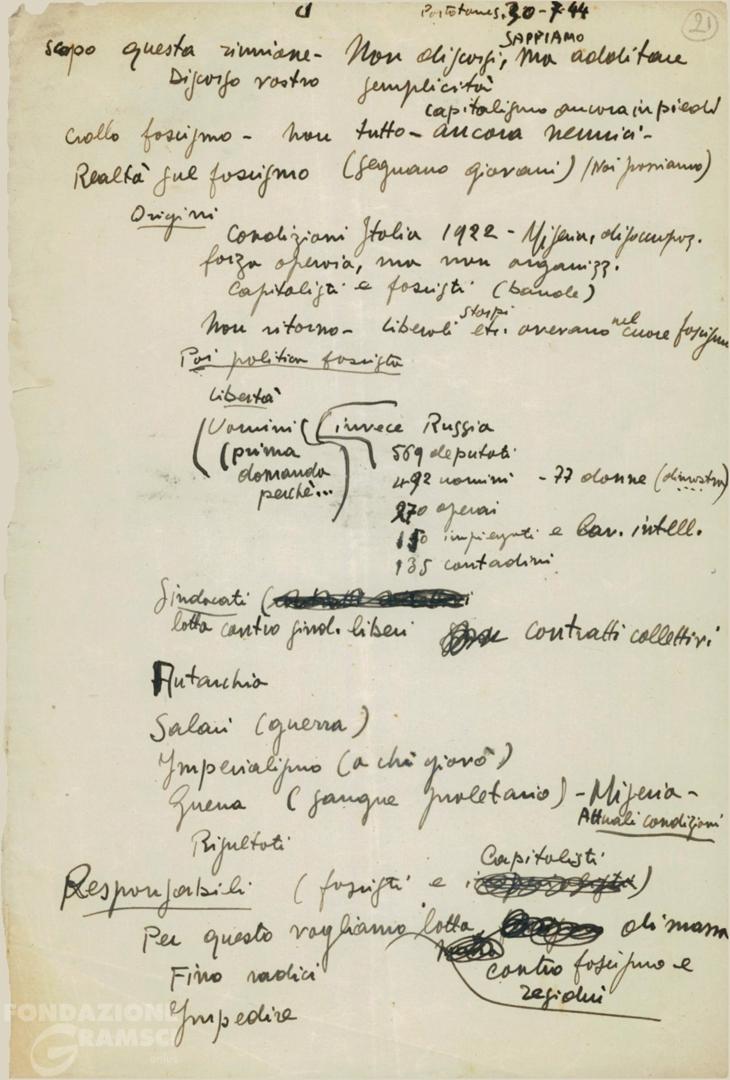 30-7-44
21
scopo questa riunione - Non discorsi, SAPPIAMO ma additare
Discorso vostro semplicità
capitalismo ancora in piedi
crollo fascismo - non tutto - ancora nemici -
Realtà sul fascismo (segnano giovani) (Noi possiamo)
Origini
Condizioni Italia 1922 - Miseria, disoccupaz.
forza operaia, ma non organizz.
Capitalisti e fascisti (bande)
Non ritorno - liberali stolpi etc. avevano nel cuore fascismo
Poi politica fascista
libertà
Uomini (invece Russia
(prima 569 deputati
domanda 492 uomini - 77 donne (dimostra)
perchè... 270 operai
150 impiegati e lav. intell.
135 contadini
Sindacati (
lotta contro sind. liberi contratti collettivi
Autarchia
Salari (guerra)
Imperialismo (a chi giovò)
Guerra (sangue proletario) - Miseria -
Attuali condizioni
Risultati
Capitalisti
Responsabili (fascisti e )
Per questo vogliamo lotta di massa
Fino radici contro fascismo e
residui
Impedire
FONDAZIONE
GRAMSCI